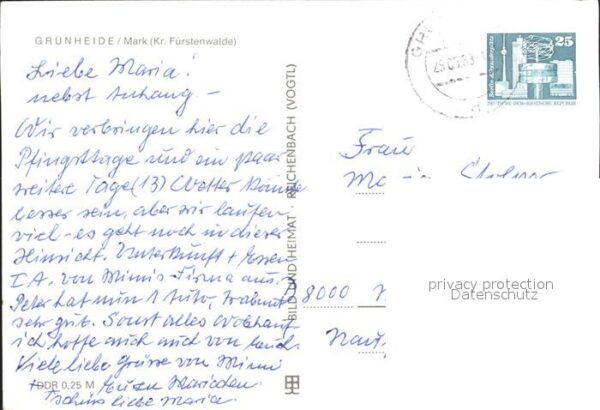 GRÜNHEIDE / Mark (Kr. Fürstenwalde)
Liebe Maria!
nebst Anhang -
Wir verbringen hier die
Pfingsttage und ein paar
weitere Tage (13) Wetter könnte
besser sein, aber wir laufen
viel - es geht noch in dieser
Hinsicht. Unterkunft + Essen
I A. von Mimis-Firma aus.
Peter hat nun 1 Auto, Trabant
sehr gut. Sonst alles wohlauf
ich hoffe auch auch von Euch.
Viele liebe Grüsse von Mimi
DDR 0,25 M
Tschüss liebe Maria.
BILD UND HEIMAT REICHENBACH (VOGTL)
25
DEUTSCHE DEMOKRATISCHE REPUBLIK
Frau
8000
privacy protection
Datenschutz